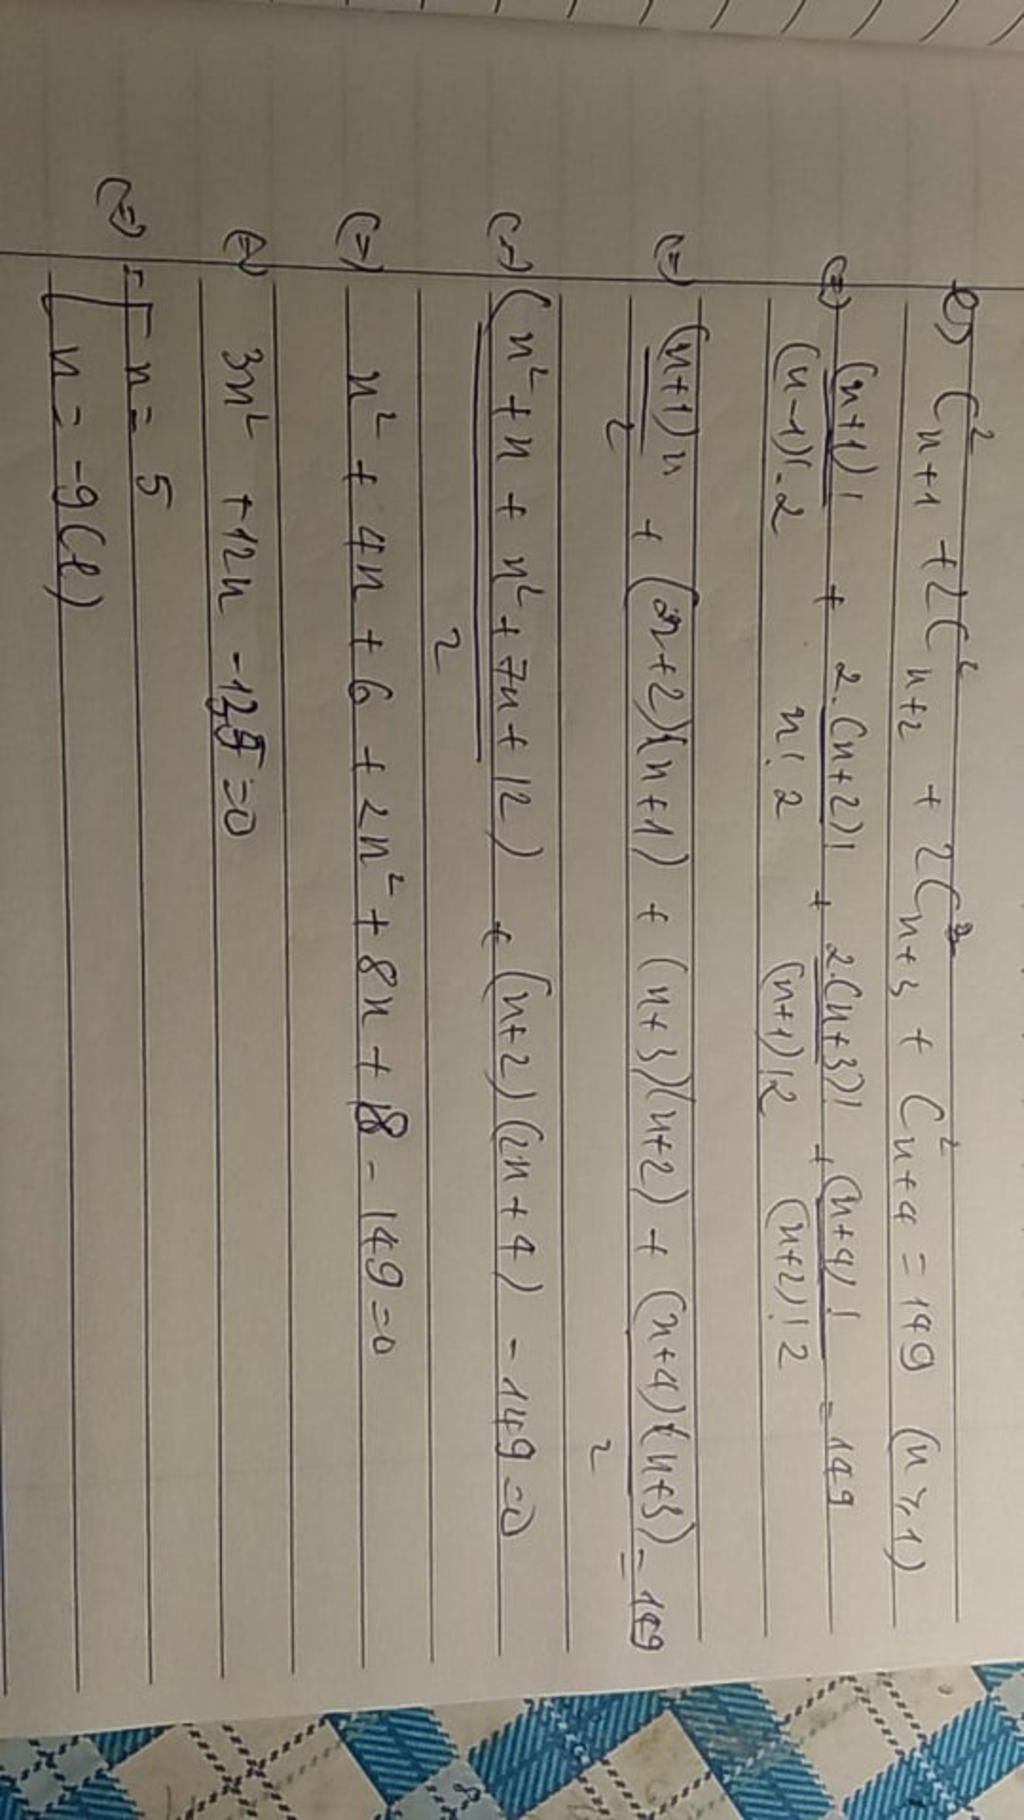 e) C²ₙ₊₁ + 2C²ₙ₊₂ + 2C²ₙ₊₃ + C²ₙ₊₄ = 149 (n ≥ 1)
(=) (n+1)!/((n-1)!.2) + 2.(n+2)!/(n! 2) + 2.(n+3)!/((n+1)!2) + (n+4)!/((n+2)!2) = 149
(=) (n+1)n/2 + (n+2)(n+1) + (n+3)(n+2) + (n+4)(n+3)/2 = 149
(=) (n² + n + n² + 7n + 12)/2 + (n+2)(2n+4) - 149 = 0
(=) n² + 4n + 6 + 2n² + 8n + 8 - 149 = 0
(=) 3n² + 12n - 135 = 0
(=) [ n = 5
[ n = -9 (l)